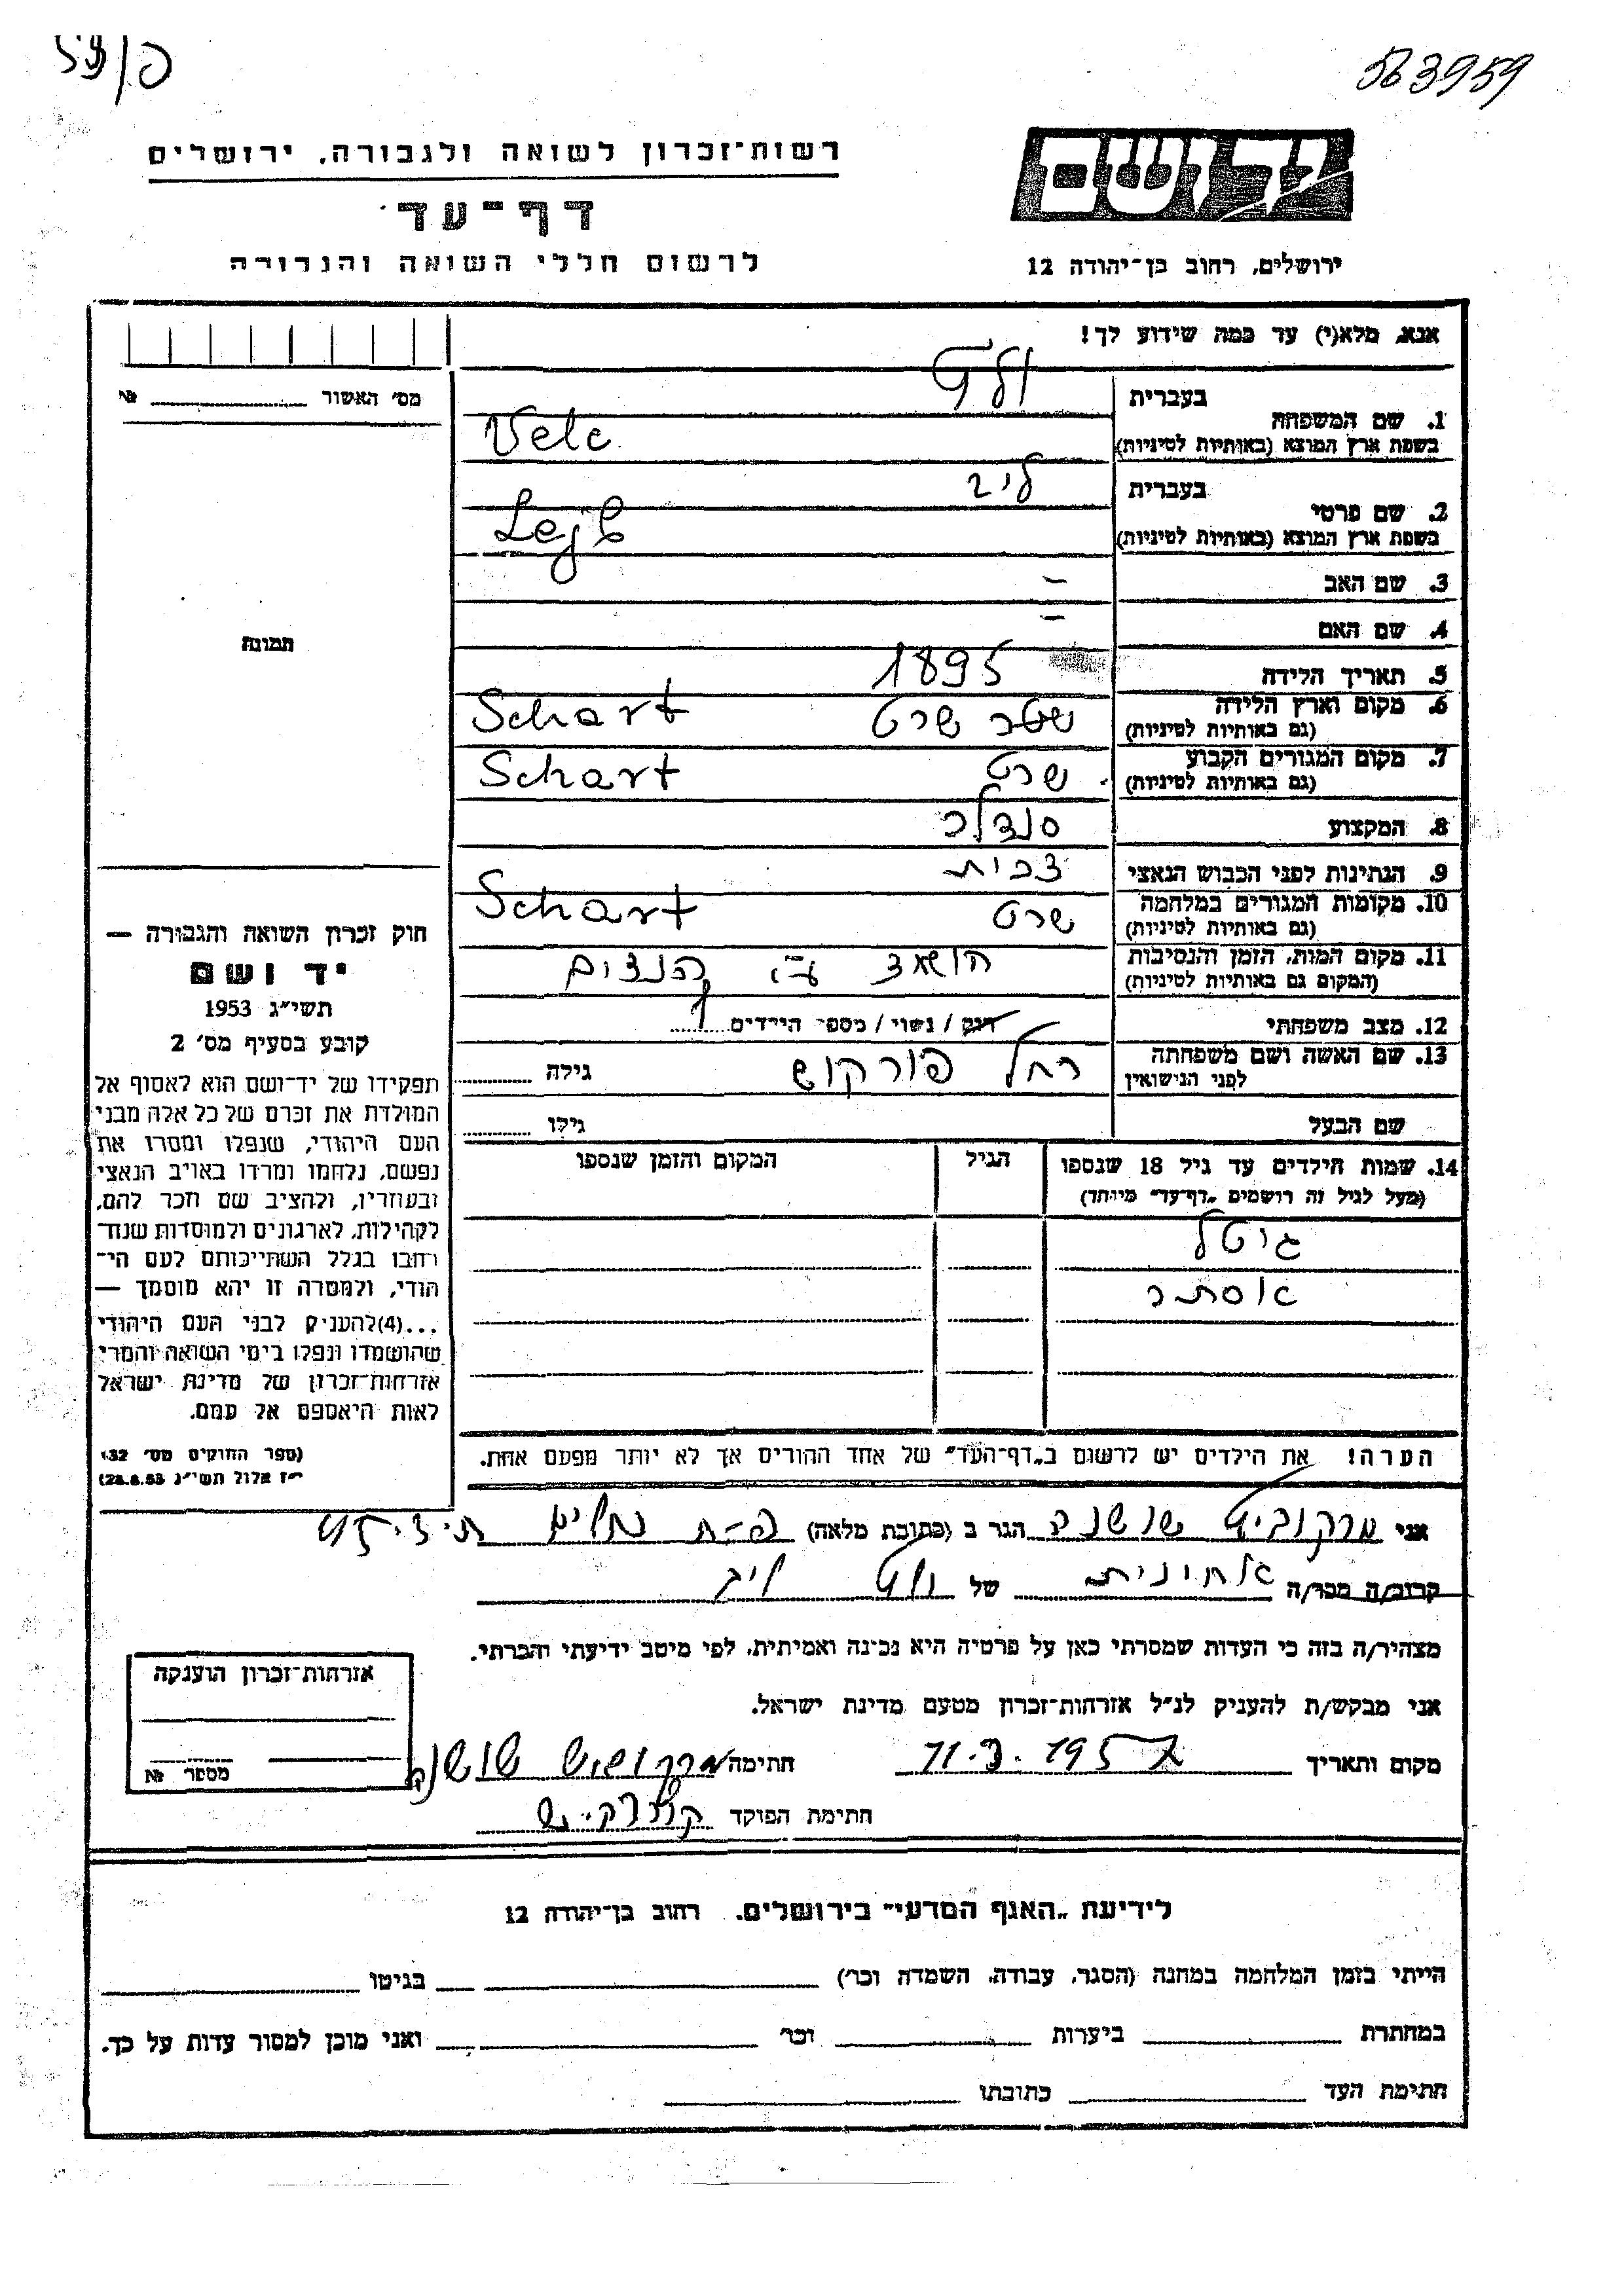 563959
יד ושם
ירושלים, רחוב בן־יהודה 12
רשות־זכרון לשואה ולגבורה, ירושלים
דף־עד
לרשום חללי השואה והגבורה
אנא, מלא(י) עד כמה שידוע לך!
מס' האשור № 
תמונה
חוק זכרון השואה והגבורה —
יד ושם
תשי״ג 1953
קובע בסעיף מס' 2
תפקידו של יד־ושם הוא לאסוף אל
המולדת את זכרם של כל אלה מבני
העם היהודי, שנפלו ומסרו את
נפשם, נלחמו ומרדו באויב הנאצי
ובעוזריו, ולהציב שם וזכר להם,
לקהילות, לארגונים ולמוסדות שנח־
רבו בגלל השתייכותם לעם הי־
הודי, ולמטרה זו יהא מוסמך —
...(4) להעניק לבני העם היהודי
שהושמדו ונפלו בימי השואה והמרי
אזרחות־זכרון של מדינת ישראל
לאות היאספם אל עמם.
(ספר החוקים מס' 132
י״ז אלול תשי״ג 28.8.53)
1. שם המשפחה
בעברית ולץ
בשפת ארץ המוצא (באותיות לטיניות) Velc
2. שם פרטי
בעברית ליב
בשפת ארץ המוצא (באותיות לטיניות) Lejb
3. שם האב –
4. שם האם –
5. תאריך הלידה 1895
6. מקום וארץ הלידה שרט Schart
(גם באותיות לטיניות)
7. מקום המגורים הקבוע שרט Schart
(גם באותיות לטיניות)
8. המקצוע סנדלר
9. הנתינות לפני הכבוש הנאצי צכית
10. מקומות המגורים במלחמה שרט Schart
(גם באותיות לטיניות)
11. מקום המות, הזמן והנסיבות הושמד ע״י הנצים
(המקום גם באותיות לטיניות)
12. מצב משפחתי רווק / נשוי / מספר הילדים
13. שם האשה ושם משפחתה רחל פורקוש גילה
לפני הנישואין
שם הבעל גילו
14. שמות הילדים עד גיל 18 שנספו הגיל המקום והזמן שנספו
(מעל לגיל זה רושמים „דף־עד״ מיוחד)
גיטל
אסתר
הערה! את הילדים יש לרשום ב„דף־העד״ של אחד ההורים אך לא יותר מפעם אחת.
אני מרקוביץ שושנה הגר ב (כתובת מלאה) פ-ת
קרוב/ה מכר/ה אחינית של ולץ ליב
מצהיר/ה בזה כי העדות שמסרתי כאן על פרטיה היא נכונה ואמיתית, לפי מיטב ידיעתי והכרתי.
אני מבקש/ת להעניק לנ״ל אזרחות־זכרון מטעם מדינת ישראל.
מקום ותאריך 11.3.195 חתימה מרקוביץ שושנה
חתימת הפוקד
אזרחות־זכרון הוענקה
מספר №
לידיעת „האגף המדעי״ בירושלים, רחוב בן־יהודה 12
הייתי בזמן המלחמה במחנה (הסגר, עבודה, השמדה וכר') בגיטו
במחתרת ביערות וכר' ואני מוכן למסור עדות על כך.
חתימת העד כתובתו